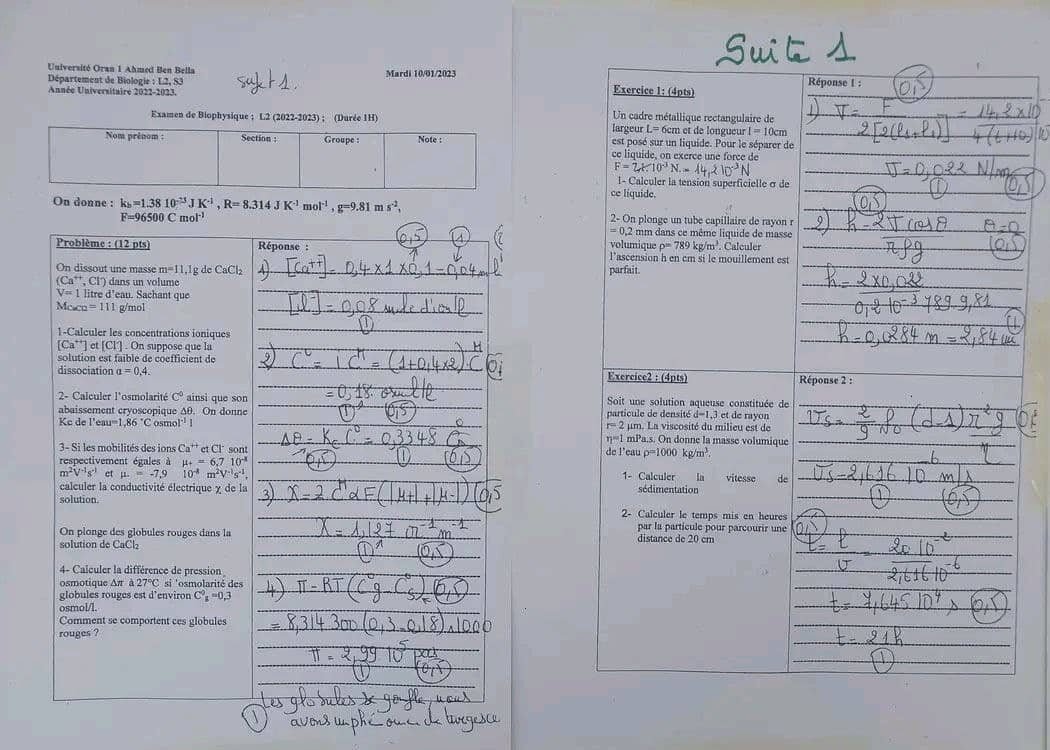 Université Oran 1 Ahmed Ben Bella
Département de Biologie : L2, S3
Année Universitaire 2022-2023.
sujet 1.
Mardi 10/01/2023
Examen de Biophysique ; L2 (2022-2023) ; (Durée 1H)
Nom prénom :
Section :
Groupe :
Note :
On donne : kb=1.38 10⁻²³ J K⁻¹ , R= 8.314 J K⁻¹ mol⁻¹ , g=9.81 m s⁻²,
F=96500 C mol⁻¹
Problème : (12 pts)
On dissout une masse m=11,1g de CaCl2
(Ca⁺⁺, Cl⁻) dans un volume
V= 1 litre d'eau. Sachant que
= 111 g/mol
1-Calculer les concentrations ioniques
[Ca⁺⁺] et [Cl⁻] . On suppose que la
solution est faible de coefficient de
dissociation α = 0,4.
2- Calculer l'osmolarité C⁰ ainsi que son
abaissement cryoscopique Δθ. On donne
Kc de l'eau=1,86 °C osmol⁻¹ l
3- Si les mobilités des ions Ca⁺⁺ et Cl⁻ sont
respectivement égales à μ₊ = 6,7 10⁻⁸
m²V⁻¹s⁻¹ et μ₋ = -7,9 10⁻⁸ m²V⁻¹s⁻¹,
calculer la conductivité électrique χ de la
solution.
On plonge des globules rouges dans la
solution de CaCl2
4- Calculer la différence de pression
osmotique Δπ à 27°C si 'osmolarité des
globules rouges est d'environ C⁰g =0,3
osmol/l.
Comment se comportent ces globules
rouges ?
Réponse :
0,5
1
1) [Ca⁺⁺] = 0,4 x 1 x 0,1 = 0,04
[Cl⁻] = 0,08 mole d'ion/l
1
2) C⁰ = i Cᴹ = (1+0,4x2) Cᴹ
= 0,18 osmol/l
1
0,5
Δθ = Kc C⁰ = 0,3348 °C
0,5
1
0,5
3) X = 2 Cᴹ α F (|μ+| + |μ-|) 0,5
X = 1,127 Ω⁻¹ m⁻¹
1
0,5
4) π = RT (C⁰g - C⁰s) 0,5
= 8,314 300 (0,3 - 0,18) x 1000
π = 2,99 10⁵ pas
1
0,5
Les globules se gonfle, nous
1 avons un phé de turgesce
Suite 1
Exercice 1: (4pts)
Un cadre métallique rectangulaire de
largeur L= 6cm et de longueur l = 10cm
est posé sur un liquide. Pour le séparer de
ce liquide, on exerce une force de
F = 10⁻³ N. = 14,2 10⁻³ N
1- Calculer la tension superficielle σ de
ce liquide.
2- On plonge un tube capillaire de rayon r
= 0,2 mm dans ce même liquide de masse
volumique ρ= 789 kg/m³. Calculer
l'ascension h en cm si le mouillement est
parfait.
Réponse 1 :
0,5
1) σ = F / 2[2(l₂+l₁)] = 14,2 x 10 / 4(6+10) 10
σ = 0,022 N/m
1
0,5
0,5
2) h = 2σ cos θ / r ρ g θ = 0
0,5
h = 2 x 0,022 / 0,2 10⁻³ 789 9,81
1
h = 0,0284 m = 2,84 cm
Exercice2 : (4pts)
Soit une solution aqueuse constituée de
particule de densité d=1,3 et de rayon
r= 2 μm. La viscosité du milieu est de
η=1 mPa.s. On donne la masse volumique
de l'eau ρ=1000 kg/m³.
1- Calculer la vitesse de
sédimentation
2- Calculer le temps mis en heures
par la particule pour parcourir une
distance de 20 cm
Réponse 2 :
Vs = 2/9 ρ₀ (d-1) r² g / η
Vs = 2,616 10⁻⁶ m/s
1
0,5
0,5
t = l / v = 20 10⁻² / 2,616 10⁻⁶
t = 7,645 10⁴ s 0,5
t = 21h
1